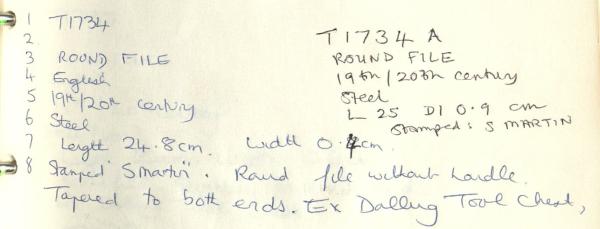 1 T1734
2
3 ROUND FILE
4 English
5 19th/20th century
6 Steel
7 Length 24.8cm. Width 0.4cm.
8 Stamped "Smartin". Round file without handle.
Tapered to both ends. Ex Dalling Tool Chest,
T1734 A
ROUND FILE
19th/20th century
Steel
L 25 DI 0.9 cm
Stamped: S MARTIN